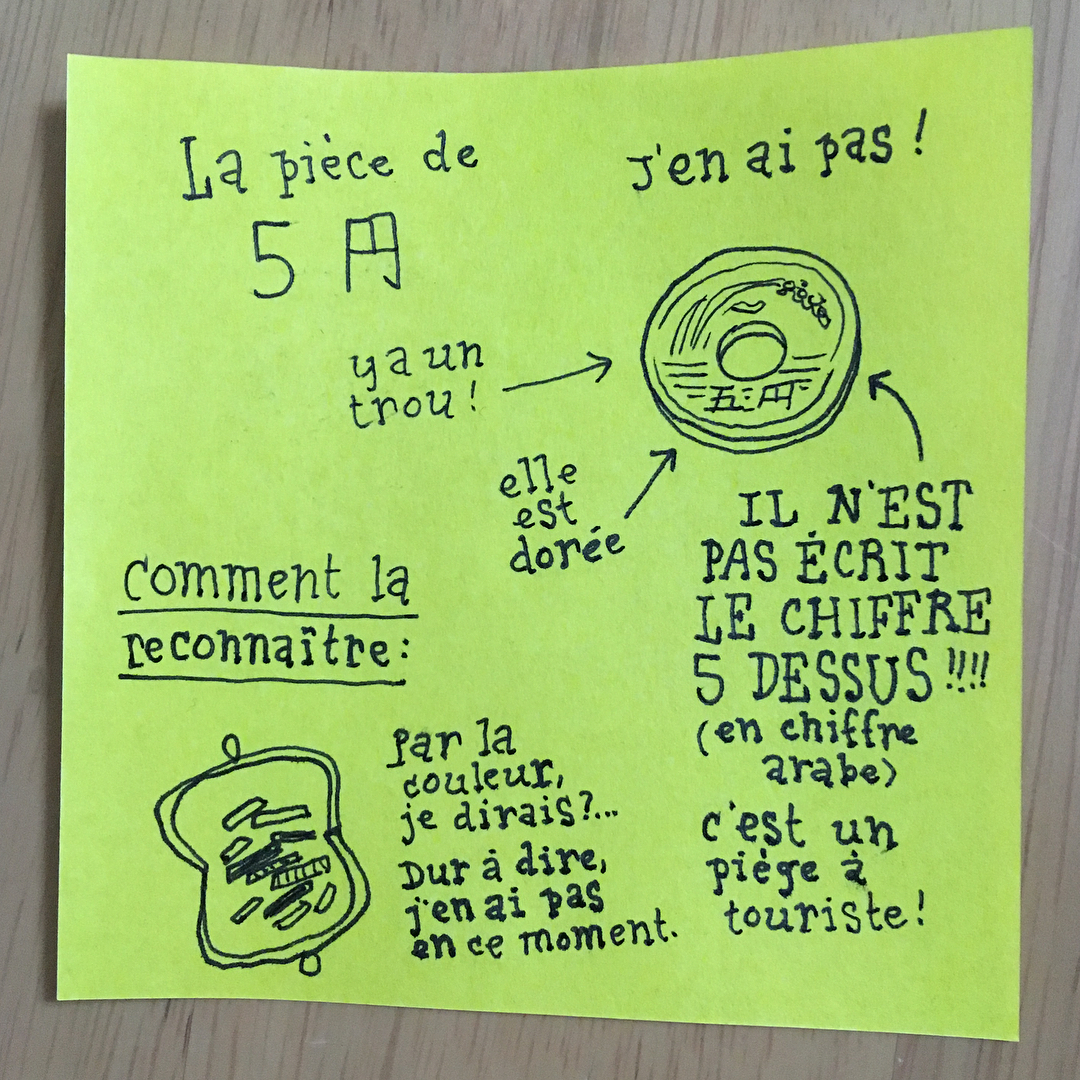 La pièce de
5 円
j'en ai pas!
y a un
trou!
五円
elle
est
dorée
IL N'EST
PAS ÉCRIT
LE CHIFFRE
5 DESSUS!!!!
(en chiffre
arabe)
c'est un
piège à
touriste!
comment la
reconnaître:
Par la
couleur,
je dirais?...
Dur à dire,
j'en ai pas
en ce moment.